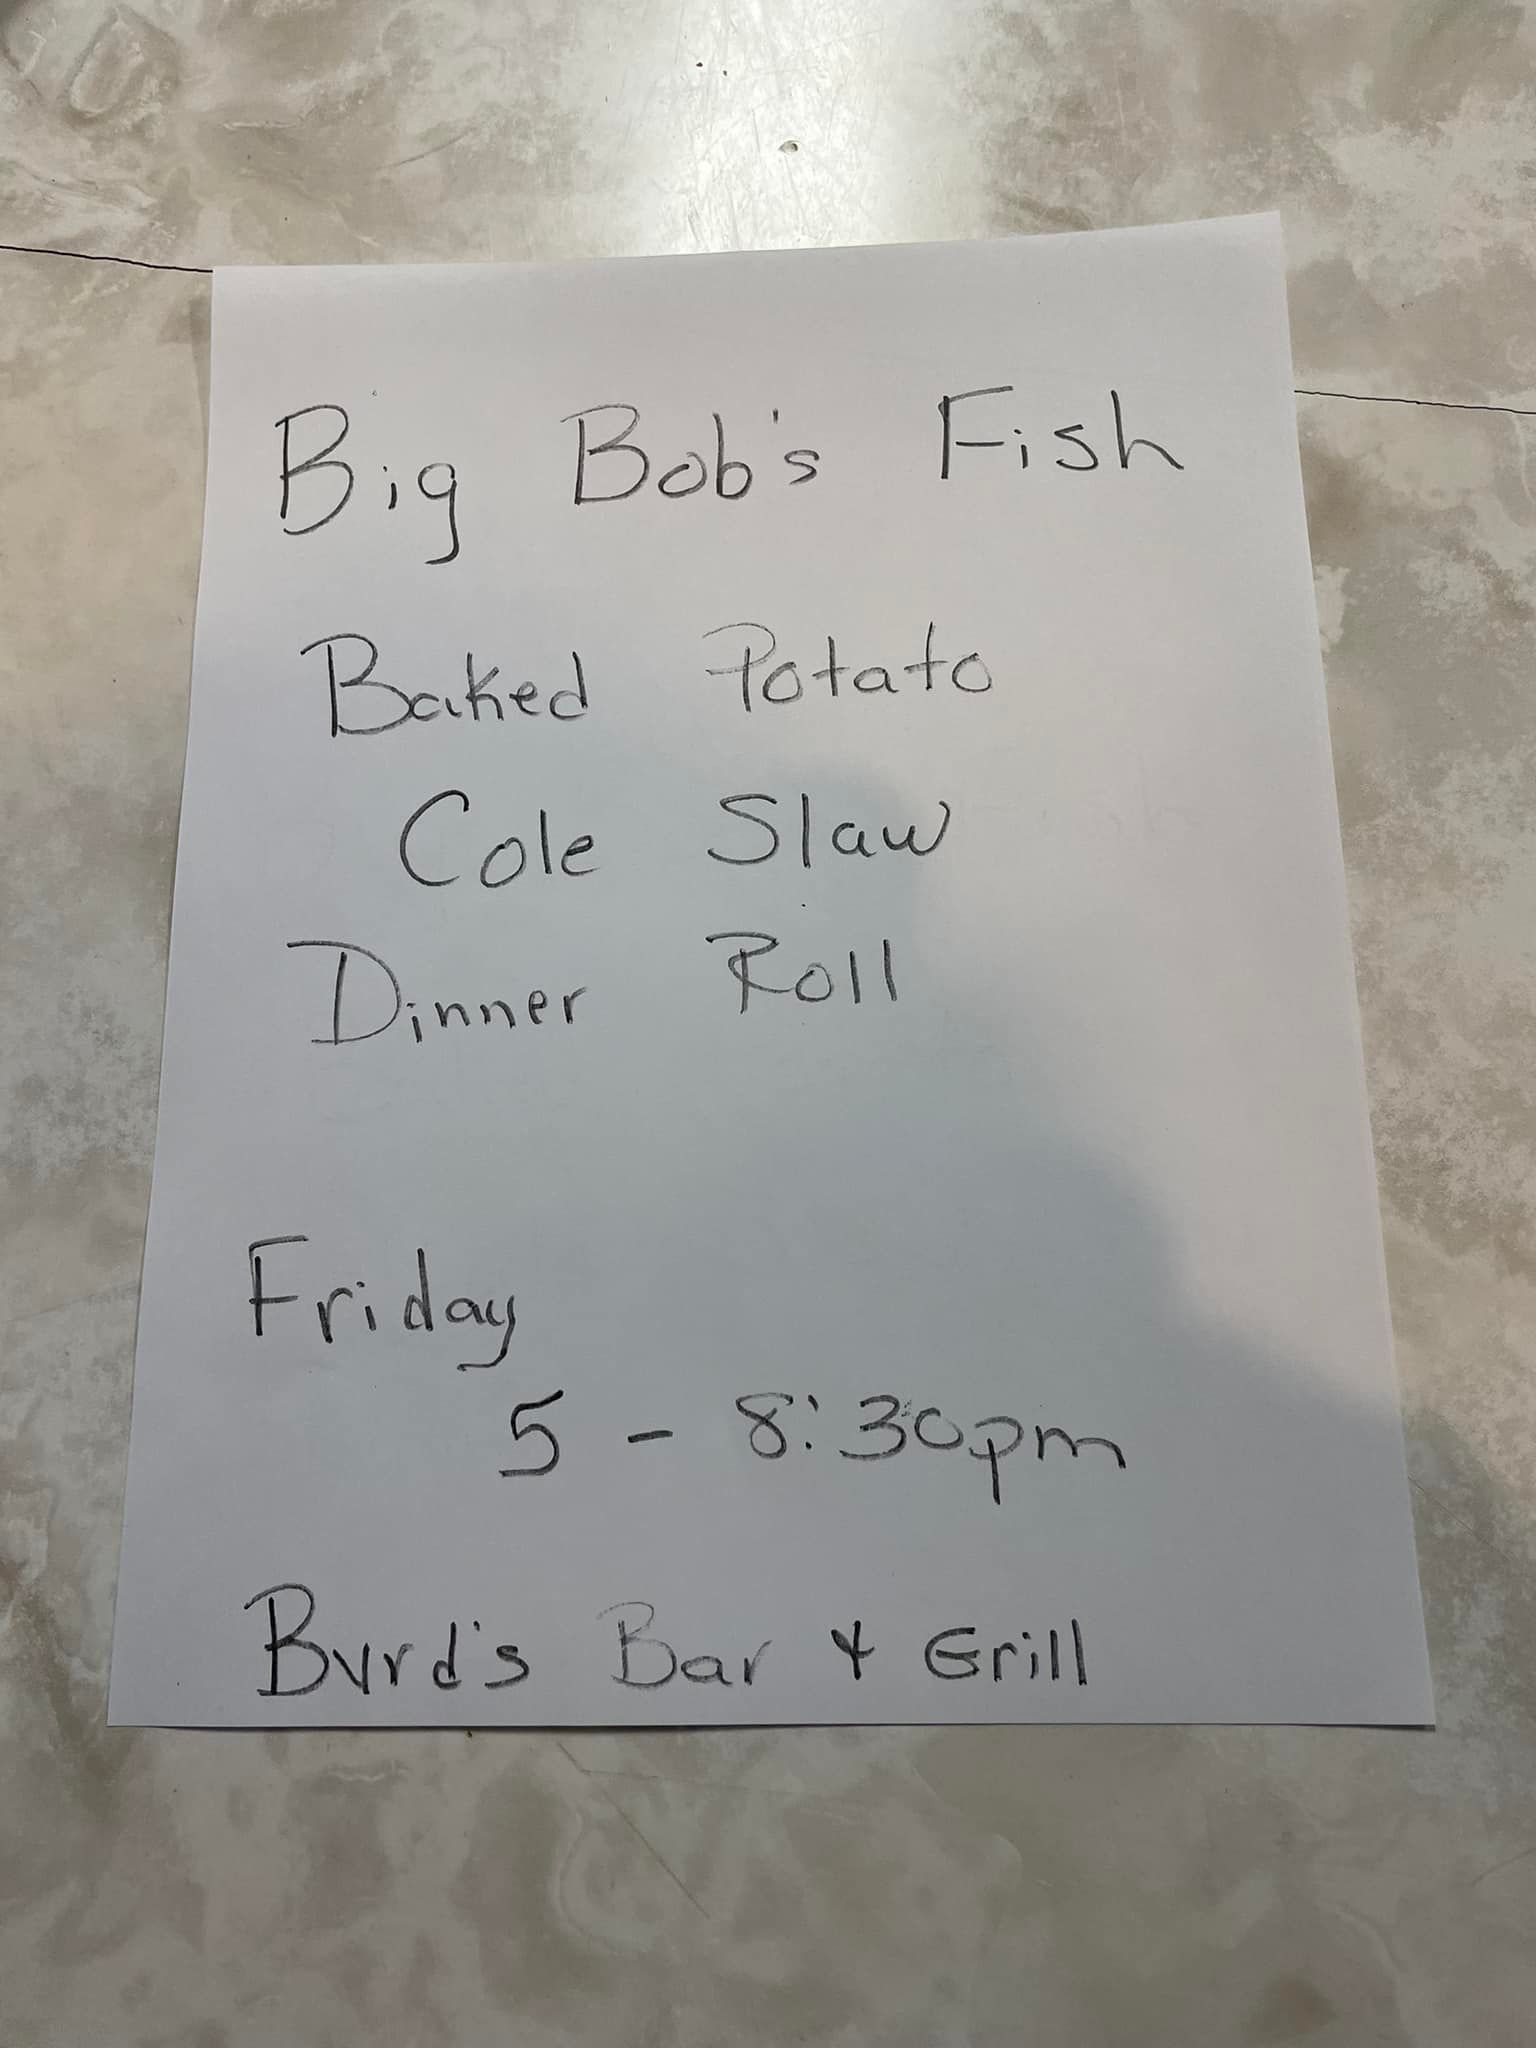 Big Bob's Fish
Baked Potato
Cole Slaw
Dinner Roll
Friday
5 - 8:30pm
Byrd's Bar & Grill